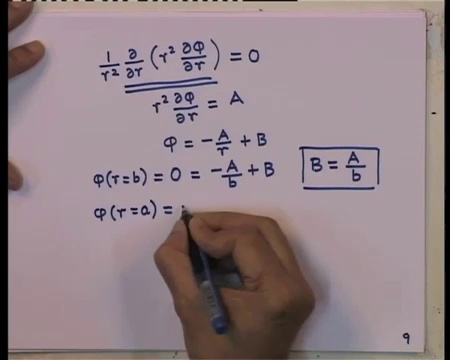 1/r² ∂/∂r (r² ∂φ/∂r) = 0
r² ∂φ/∂r = A
φ = -A/r + B
φ(r=b) = 0 = -A/b + B    B = A/b
φ(r=a) =
9